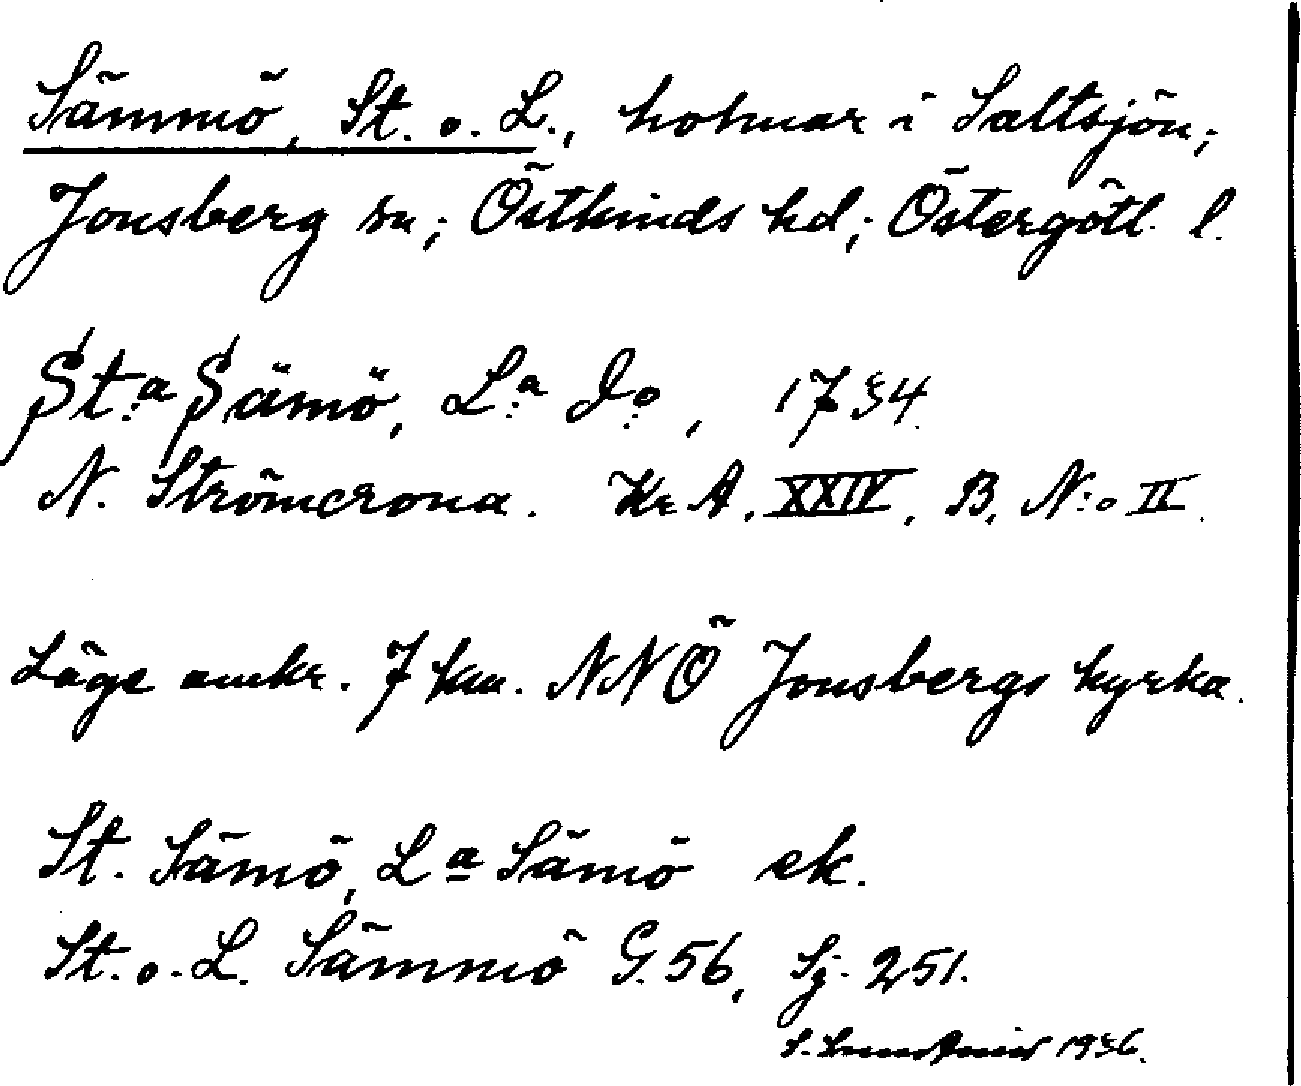 Sämmö, St. o. L., holmar i Saltsjön;
Jonsberg sn; Östkinds hd; Östergötl. l.
St:a Sämö, L:a Do, 1734.
N. Strömcrona. Kr A. XXIV, B, N:o II.
Läge omkr. 7 km. NNÖ Jonsbergs kyrka.
St. Sämö, La Sämö ek.
St. o. L. Sämmö G. 56, Sj. 251.
S. 1936.